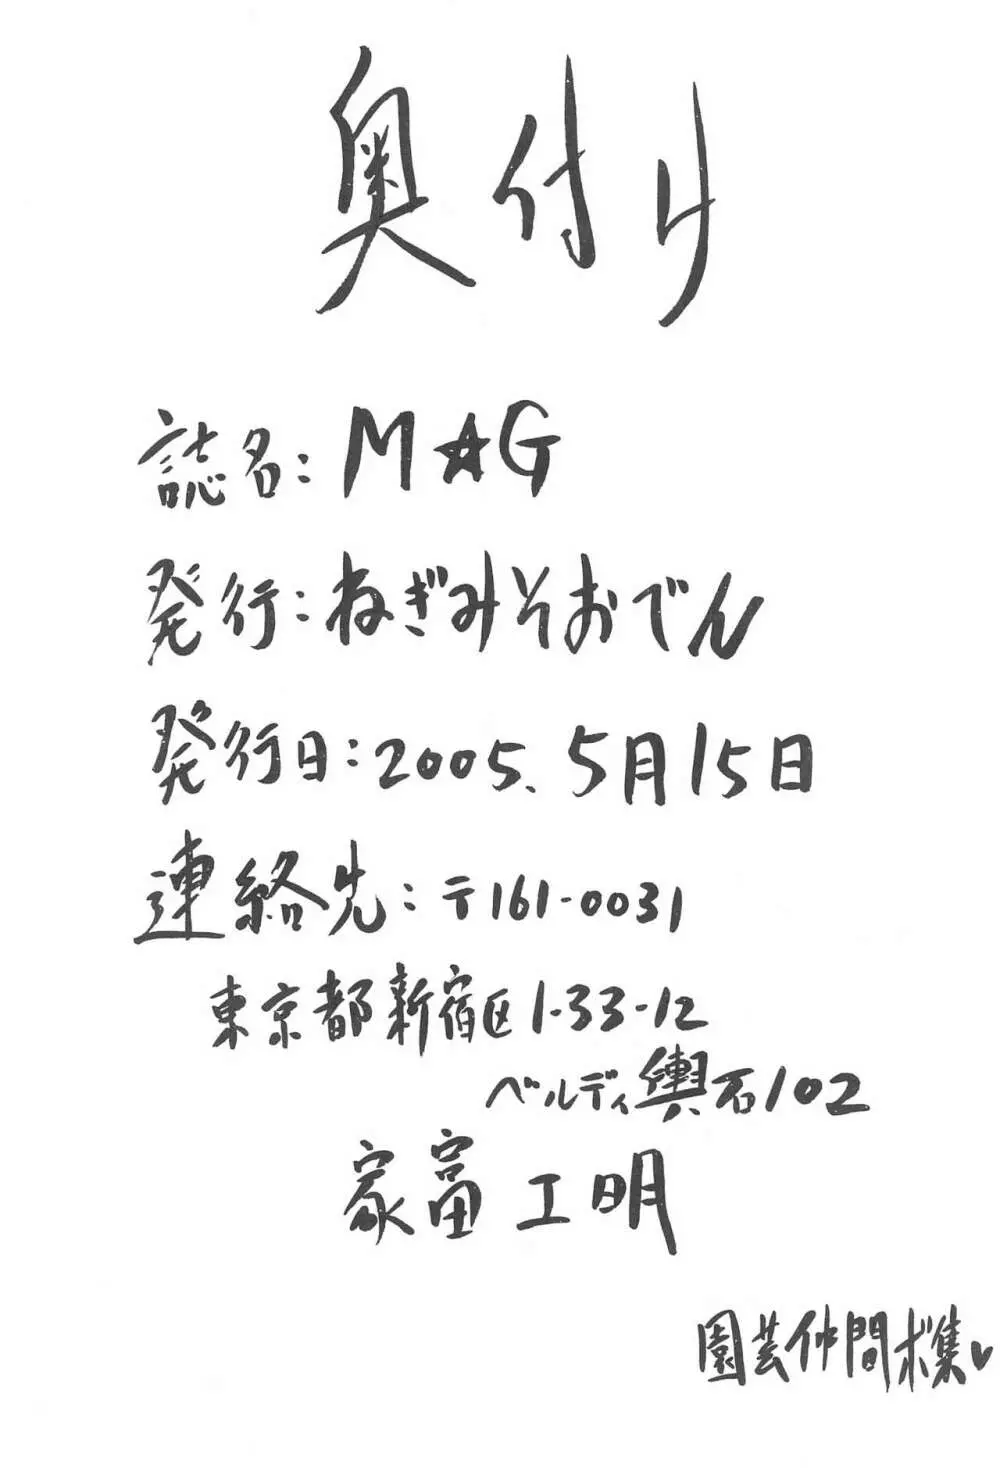 奥付け
誌名:M★G
発行:ねぎみそおでん
発行日:2005.5月15日
連絡先:〒161-0031
東京都新宿区1-33-12
ベルディ輿石102
家富工明
園芸仲間ボ集♥